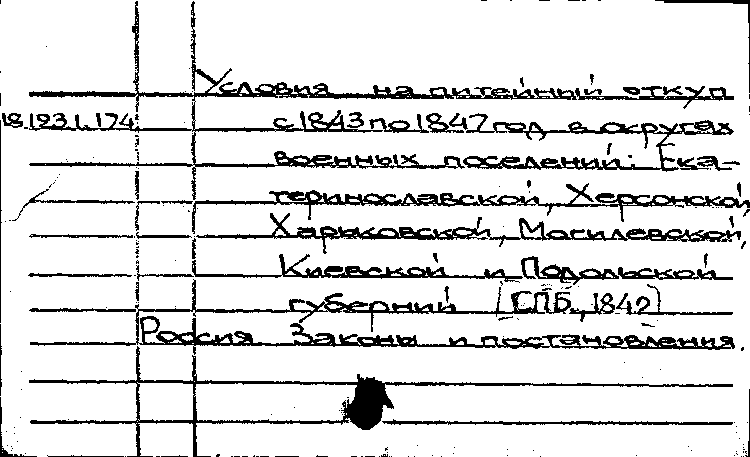 Условия на питейный откуп
18.193.1.174 с 1843 по 1847 год в округах
военных поселений: Ека-
теринославской, Херсонской,
Харьковской, Могилевской,
Киевской и Подольской
губерний [СПБ., 1842]
Россия Законы и постановления.